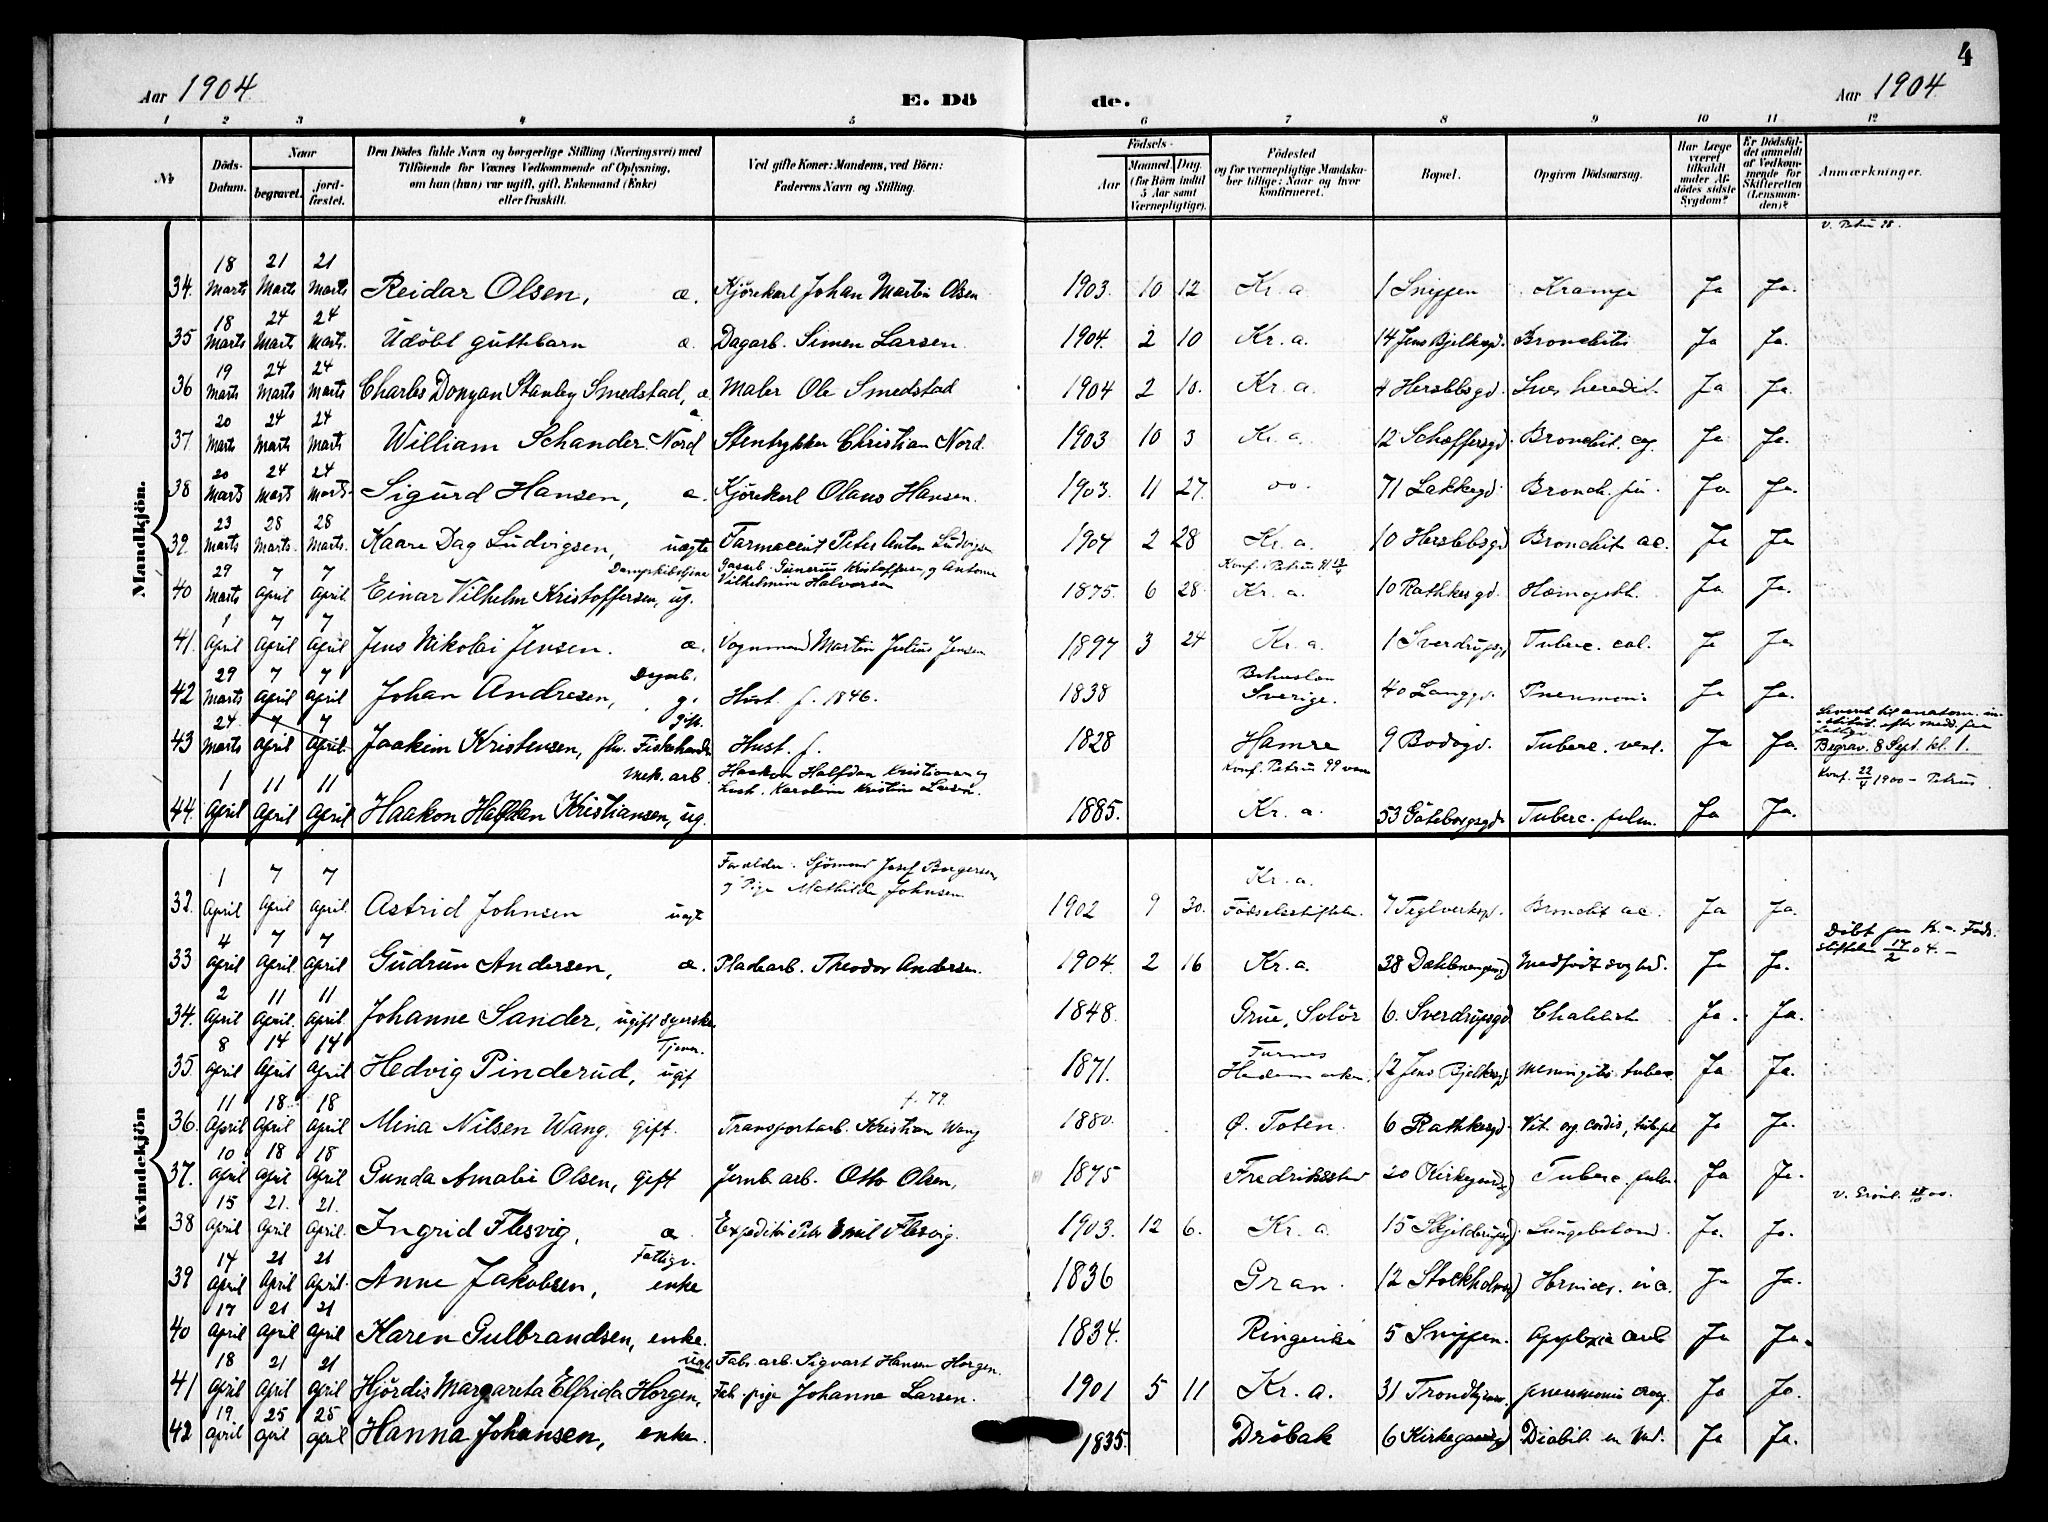 4
Aar 1904 E. Dö de. Aar 1904
1 2 3 4 5 6 7 8 9 10 11 12
№ Döds-Datum. Naar begravet. jord-fæstet. Den Dödes fulde Navn og borgerlige Stilling (Næringsvei) med Tilföiende for Voxnes Vedkommende af Oplysning, om han (hun) var ugift, gift, Enkemand (Enke) eller fraskilt. Ved gifte Koner: Mandens, ved Börn: Faderens Navn og Stilling. Födsels- Aar Maaned. Dag. (for Börn indtil 5 Aar samt Værnepligtige). Födested og for værnepligtige Mandskaber tillige: Naar og hvor konfirmeret. Bopæl. Opgiven Dödsaarsag. Har Læge været tilkaldt under Afdödes sidste Sygdom? Er Dödsfaldet anmeldt af Vedkommende for Skifteretten (Lensmanden)? Anmærkninger.
Mandkjön.
34. 18 Marts 21 Marts 21 Marts Reidar Olsen, æ. Kjörekarl Johan Martin Olsen 1903. 10 12 Kr. a. 1 Snippen Krampe Ja Ja.
35 18 Marts 24 Marts 24 Marts. Udöbt guttebarn æ. Dagarb. Simen Larsen. 1904. 2 10 Kr. a. 14 Jens Bjelkesgd. Bronchitis Ja Ja.
36 19 Marts 24 Marts 24 Marts Charles Donyan Stanley Smedstad, æ. Maler Ole Smedstad 1904 2 10. Kr. a. 4 Herslebsgd. Lues heredit. Ja Ja.
37 20 Marts 24 Marts 24 Marts William Schander Nord æ. Stentrykker Christian Nord. 1903 10 3 Kr. a. 12 Schæffersgd. Bronchit. Ja Ja.
38 20 Marts 24 Marts 24 Marts. Sigurd Hansen, æ. Kjörekarl Olaus Hansen. 1903. 11 27. 71 Lakkegd. Bronch. Ja. Ja.
39. 23 Marts 28 Marts. 28 Marts. Kaare Dag Ludvigsen, uægte Farmaceut Peter Anton Ludvigsen 1904 2 28 Kr. a. 10 Herslebsgd Bronchit ac. Ja Ja
40 29 Marts 7 April 7 April. Einar Vilhelm Kristoffersen, ug. Gunerius Kristoffersen, og Antonie Vilhelmine Halvorsen 1875. 6 28. Kr. a. 10 Rathkesgd. Hæmoptth. Ja Ja.
41. 1 April 7 April 7 April Jens Nikolai Jensen. æ. Vognmand Martin Julius Jensen 1897 3 24 Kr. a. 1 Sverdrupsgd Tuberc. Ja Ja
42 29 Marts 7 April 7 April Johan Andresen, g. Hust. f. 1846. 1838 Bohuslen Sverige. 40 Langgd. Pneumoni Ja Ja
43 24. Marts 7 April 7 April. Joakim Kristensen, fhv. Fiskehandl. gift. Hust. f. 1828 Hamre 9 Bodögd. Tuberc. Ja Ja. Begrav. 8 Sept. kl. 1.
44. 1 April 11 April 11 April Haakon Halfdan Kristiansen, ug. Mek. arb. Haakon Halfdan Kristiansen og Karoline Kristine Larsen. 1885. Kr. a. 53 Göteborgsgd. Tuberc. pulm. Ja Ja. Konf. 22/4 1900 - Petrus
Kvindekjön
32. 1 April 7 April 7 April. Astrid Johnsen uægt Forældre. Sjömand Josef Borgersen, og Pige Mathilde Johnsen 1902 9 30. Kr. a. Födselsstiftelse. 7 Teglverksgd. Bronchit ac. Ja Ja.
33 4 April 7 April. 7 April. Gudrun Andersen, æ. Pladearb. Theodor Andersen. 1904. 2 16 Kr. a. 38 Medfödt svaghed. Ja Ja. Döbt paa Föds. stiftelse 17/2 04. -
34. 2 April 11 April. 11 April. Johanne Sander, ugift syerske 1848. Grue, Solör 6. Sverdrupsgd Ja. Ja.
35. 8 April 14 April 14 April Hedvig Pinderud, ugift 1871. Furnes Hedemarken. 12 Jens Bjelkesgd Meningitis tuberc. Ja Ja.
36. 11 April 18. April 18 April Mina Nilsen Wang, gift. Transportarb. Kristian Wang f. 79. 1880. Ø. Toten. 6 Rathkesgd. Vit. org. cordis, Ja Ja.
37. 10 April 18 April 18 April. Gunda Amalie Olsen, gift Jernb. arb. Otto Olsen, 1875 Fredriksstad 20 Kirkegaardsgd Tuberc. pulm. Ja Ja.
38 15 April 21. April 21. April. Ingrid Flesvig, æ Expeditör Emil Flesvig. 1903. 12 6. Kr. a. 15 Skjelderupsgd. Ja. Ja.
39 14 April 21 April 21 April. Anne Jakobsen, enke 1836 Gran. 12 Stockholmsgd Ja Ja.
40 17 April 21 April 21 April Karen Gulbrandsen, enke. 1834. Ringerike 5 Snippen. Apoplexia cereb Ja Ja.
41 18 April 21 April 21 April Hjördis Margareta Elfrida Horgen, uægt Fabr. arb. Sigvart Hansen Horgen. Fab. pige Johanne Larsen. 1901 5 11 Kr. a. 31 Trondhjemsv. pneumonia croup. Ja Ja.
42 19 April 25 April 25 April Hanna Johansen, enke. 1835. Dröbak 6 Kirkegaardsgd Diabet. Ja Ja.